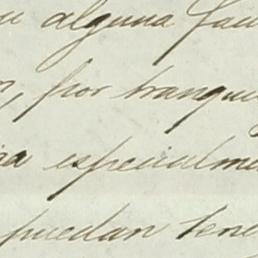 alguna
por tranqui
especialme
puedan tene